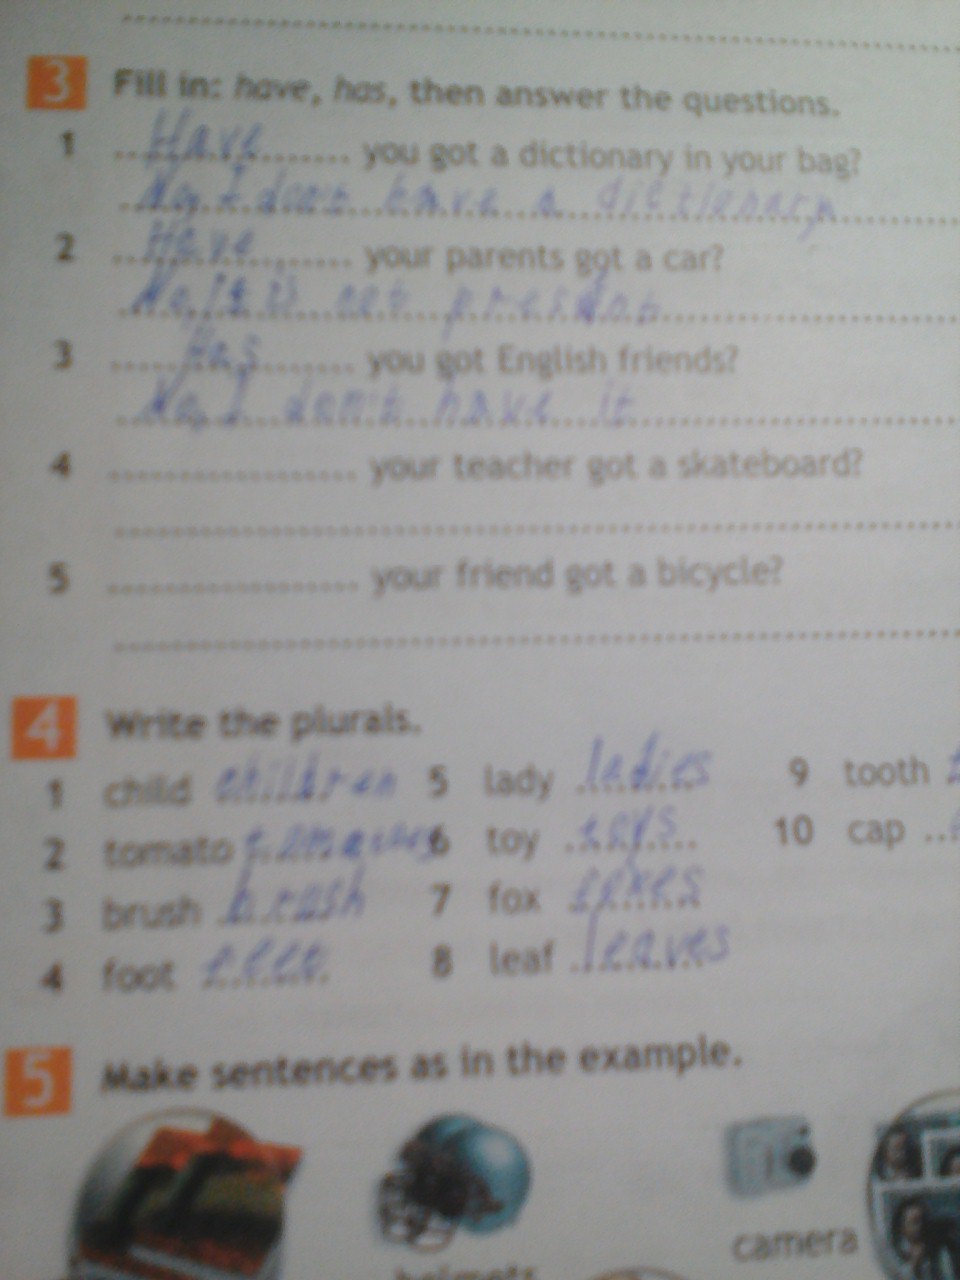 3 Fill in: have, has, then answer the questions.
1 Have you got a dictionary in your bag?
No, I don't have a dictionary
2 Have your parents got a car?
No, it is not
3 Has you got English friends?
No, I don't have it
4 your teacher got a skateboard?
5 your friend got a bicycle?
4 Write the plurals.
1 child children 5 lady ladies 9 tooth
2 tomato 6 toy toys 10 cap
3 brush brush 7 fox foxes
4 foot feet 8 leaf leaves
5 Make sentences as in the example.
camera
helmets